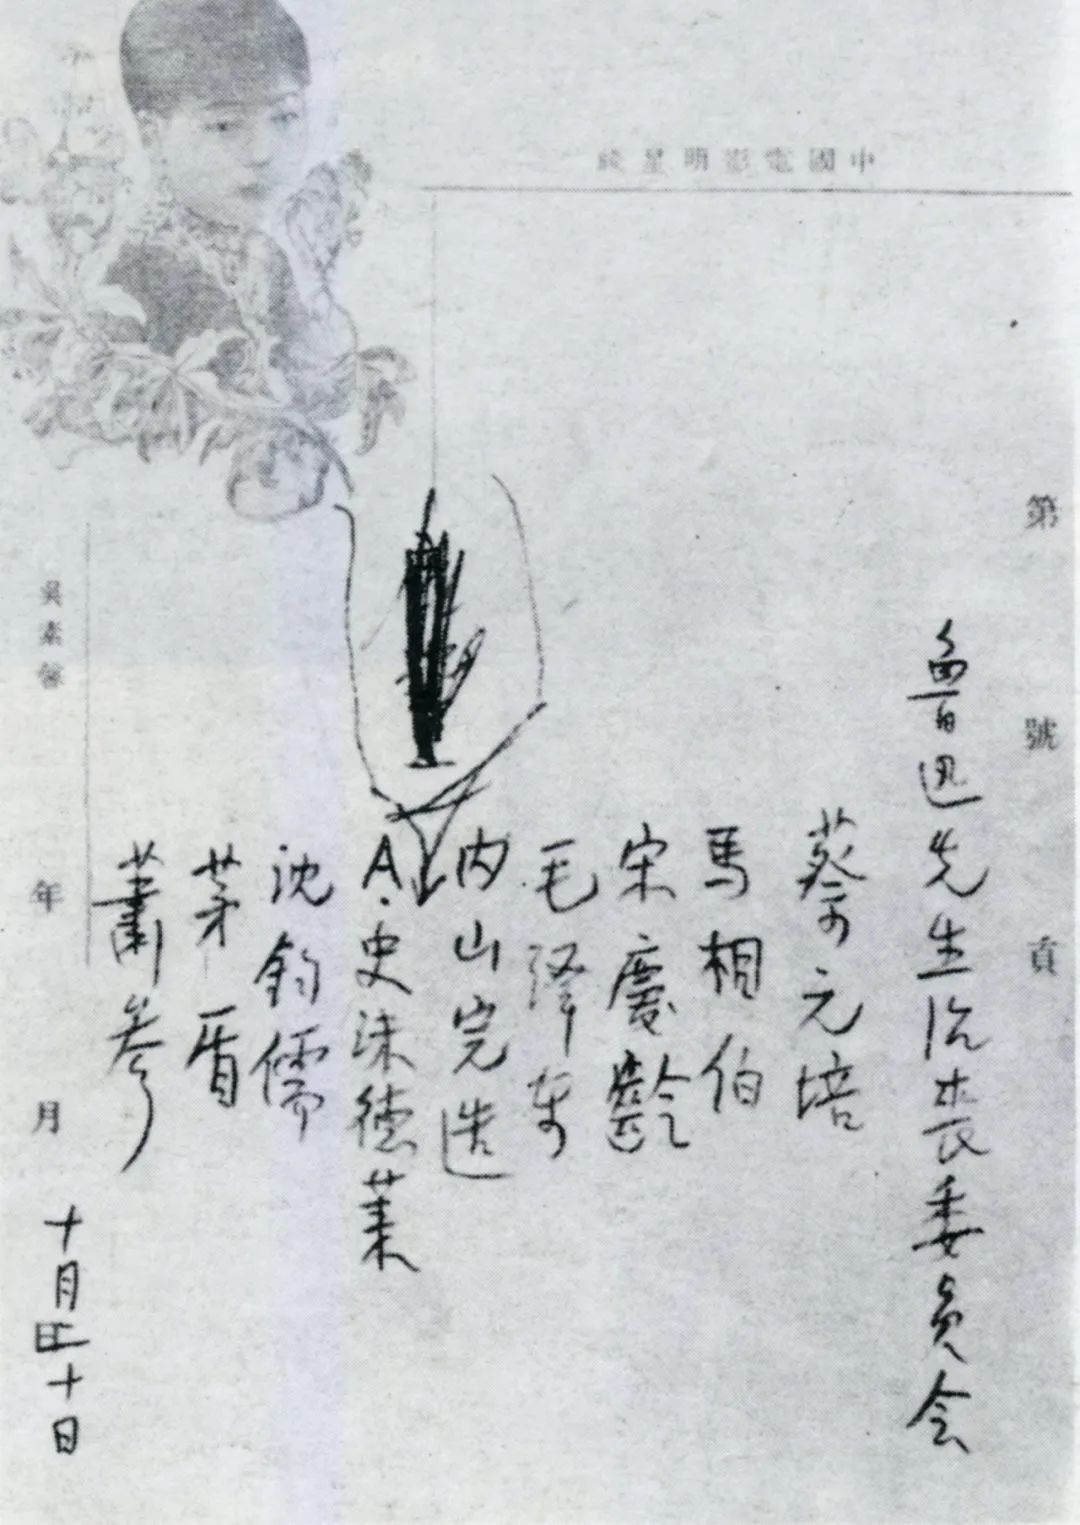 中國電影明星牋
第 號 頁
魯迅先生治丧委員会
蔡元培
馬相伯
宋慶齡
毛泽东
内山完造
A.史沫德萊
沈鈞儒
茅盾
蕭参
吳素馨
年 月
十月 十日